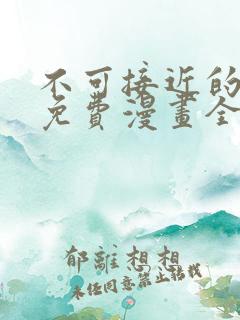 不可接近的
免費漫畫全
郁離想想
未任同意禁止轉載